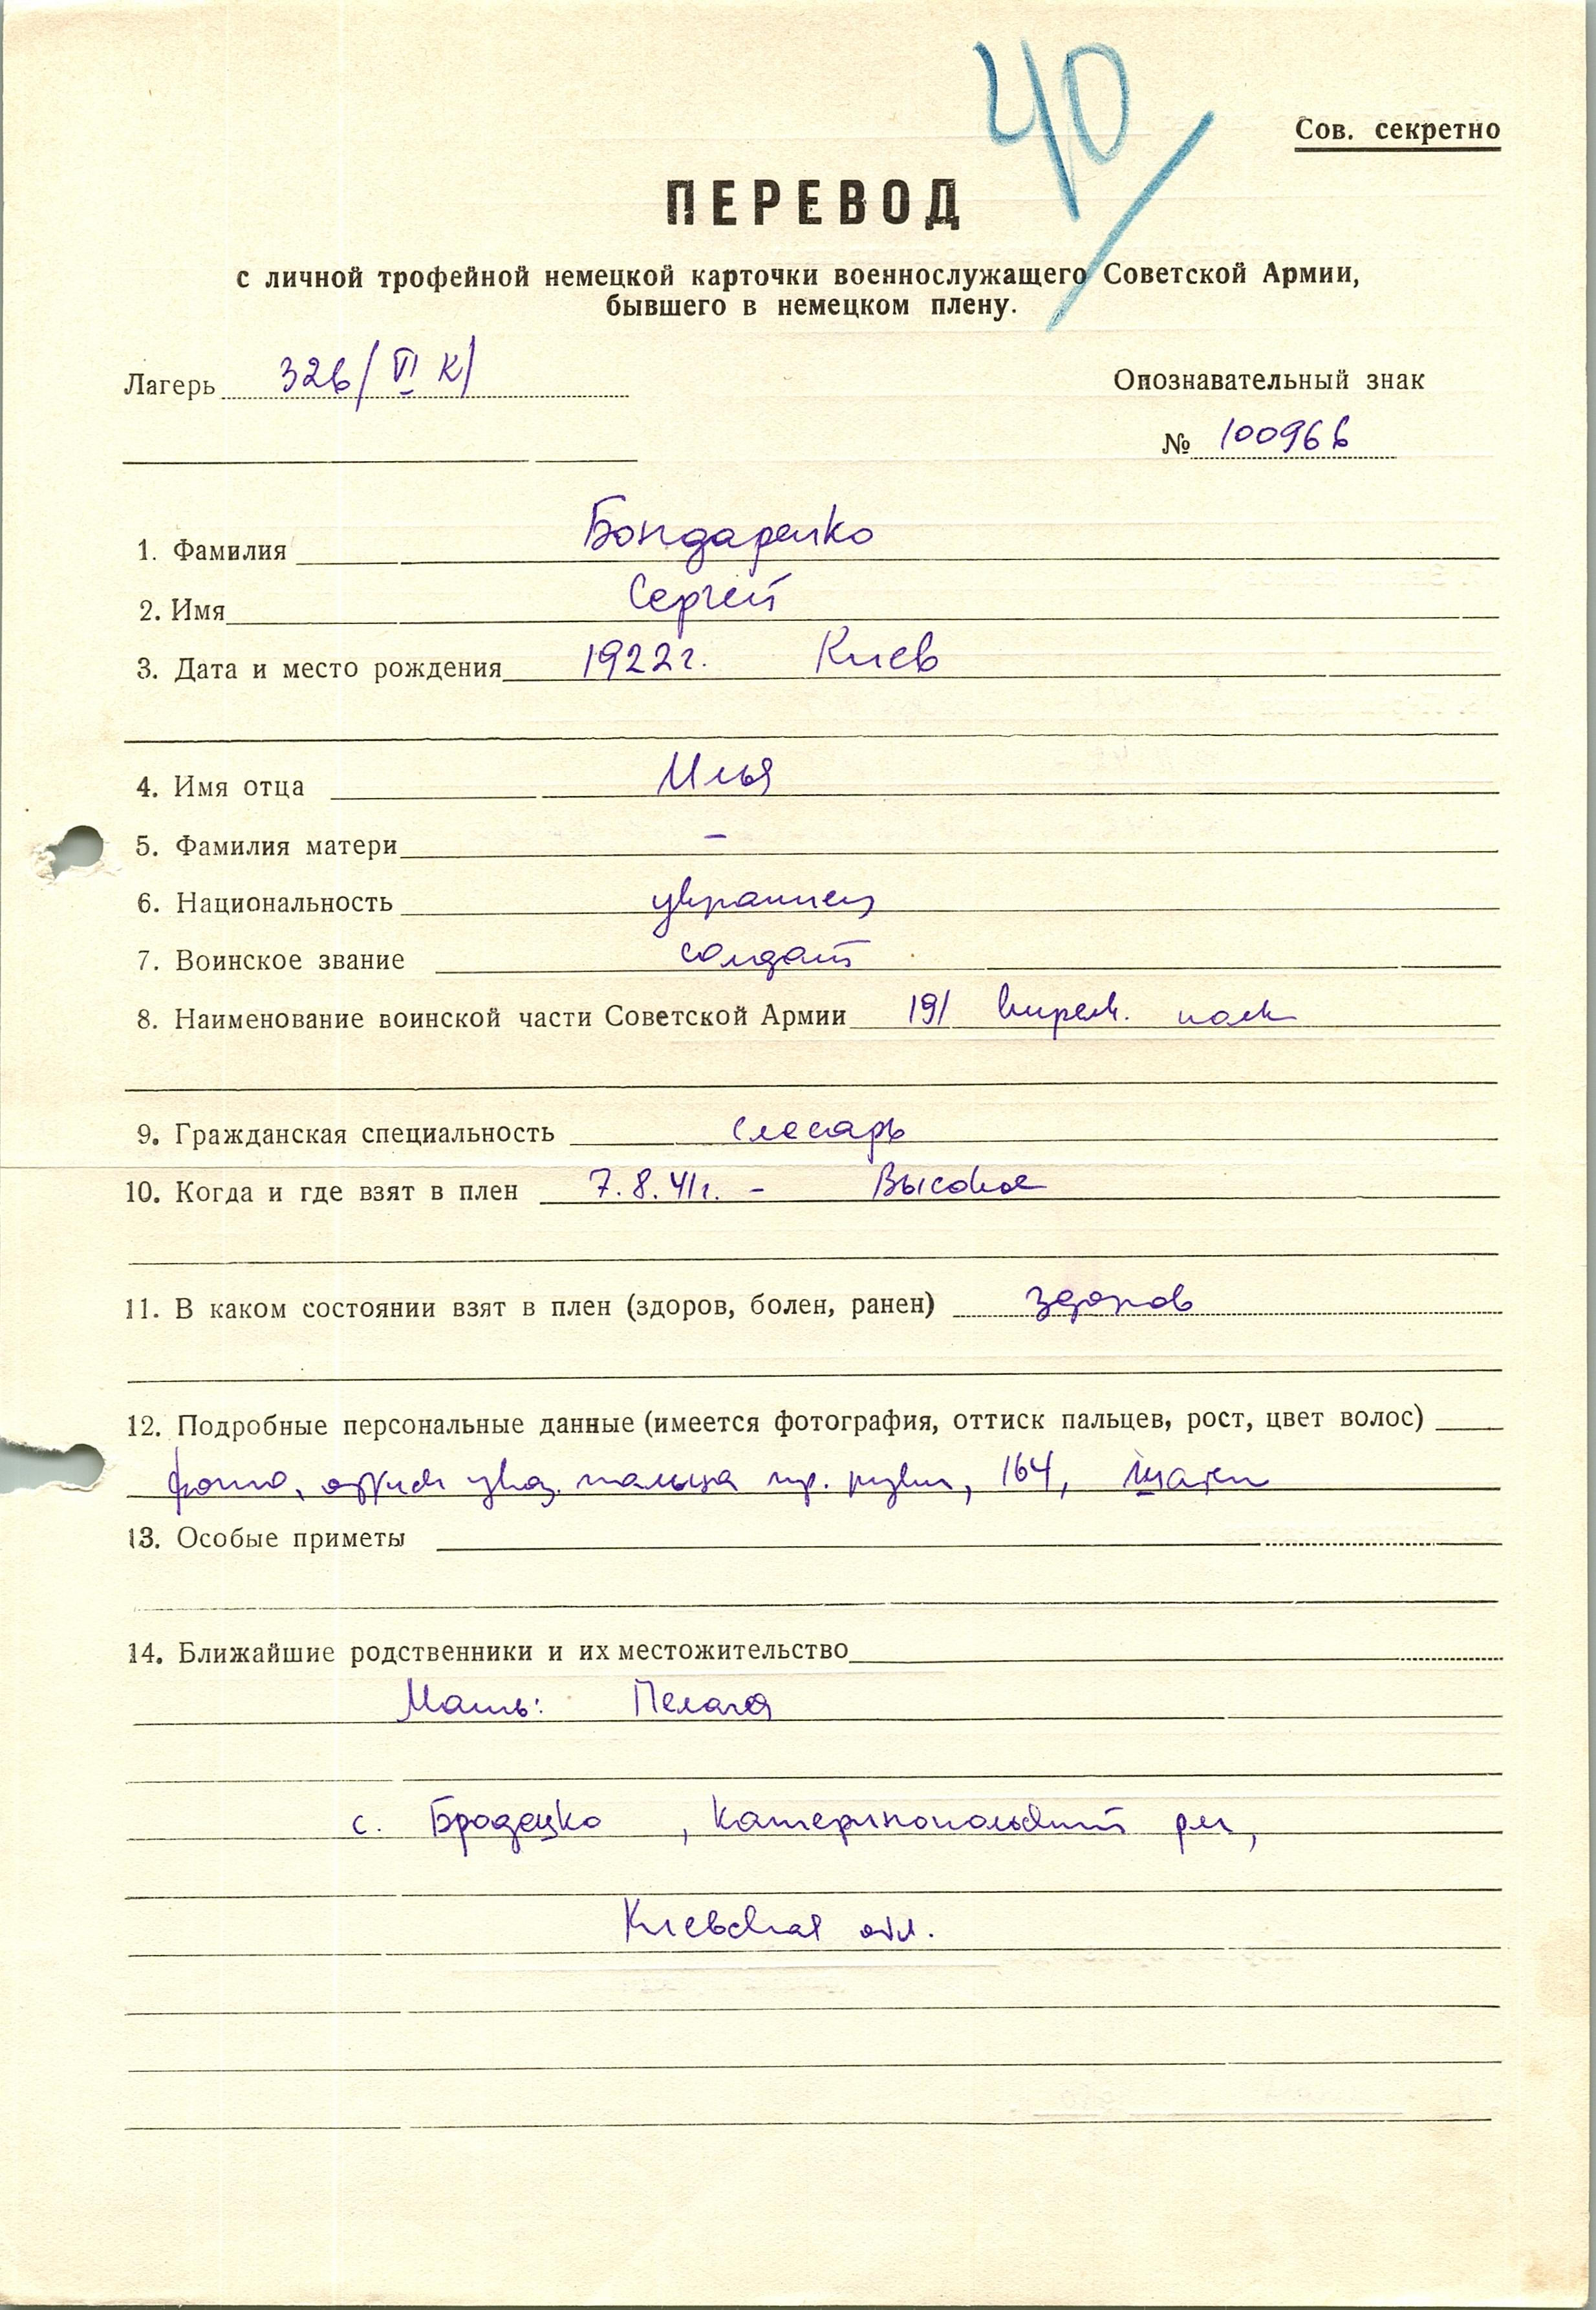 40
Сов. секретно
ПЕРЕВОД
с личной трофейной немецкой карточки военнослужащего Советской Армии,
бывшего в немецком плену.
Лагерь 326/VI К/
Опознавательный знак
№ 100966
1. Фамилия Бондаренко
2. Имя Сергей
3. Дата и место рождения 1922г. Киев
4. Имя отца Илья
5. Фамилия матери –
6. Национальность украинец
7. Воинское звание солдат
8. Наименование воинской части Советской Армии 191 стрелк. полк
9. Гражданская специальность слесарь
10. Когда и где взят в плен 7.8.41г. – Высокое
11. В каком состоянии взят в плен (здоров, болен, ранен) здоров
12. Подробные персональные данные (имеется фотография, оттиск пальцев, рост, цвет волос)
фото, оттиск указ. пальца пр. руки, 164, шатен
13. Особые приметы
14. Ближайшие родственники и их местожительство
Мать: Пелагея
с. Бродецко, Катеринопольский р-н,
Киевская обл.